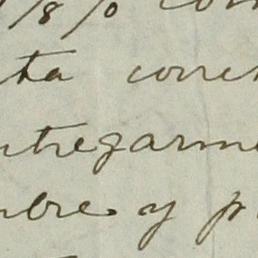 1/8 % con
ta corri
ntregarme
mbre y p